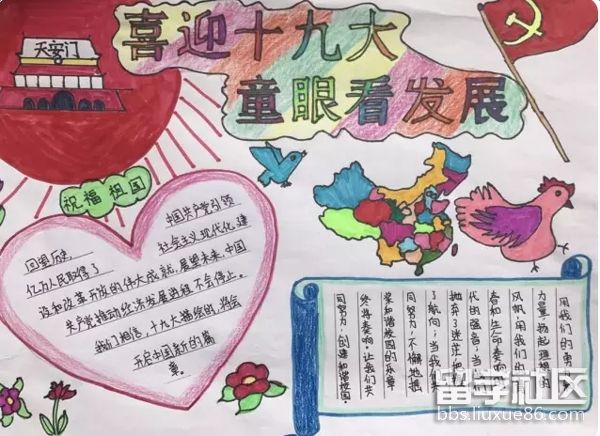 喜迎十九大
童眼看发展
天安门
祝福祖国
回望历史,
中国共产党引领
社会主义现代化建
亿万人民取得了
设和改革开放的伟大成就,展望未来,中国
共产党推动经济发展进程不会停止。
我们相信,十九大描绘的,将会
开启中国新的篇
章。
用我们的勇
力量,扬起理想的
风帆,用我们的
春和生命奏响
代的强音;当我们
抛弃了迷茫,把
了航向;当我们共
同努力,不懈地拼
和谐校园的乐章
终将奏响。让我们共
同努力,创建和谐校园。
留学社区
bbs.liuxue86.com